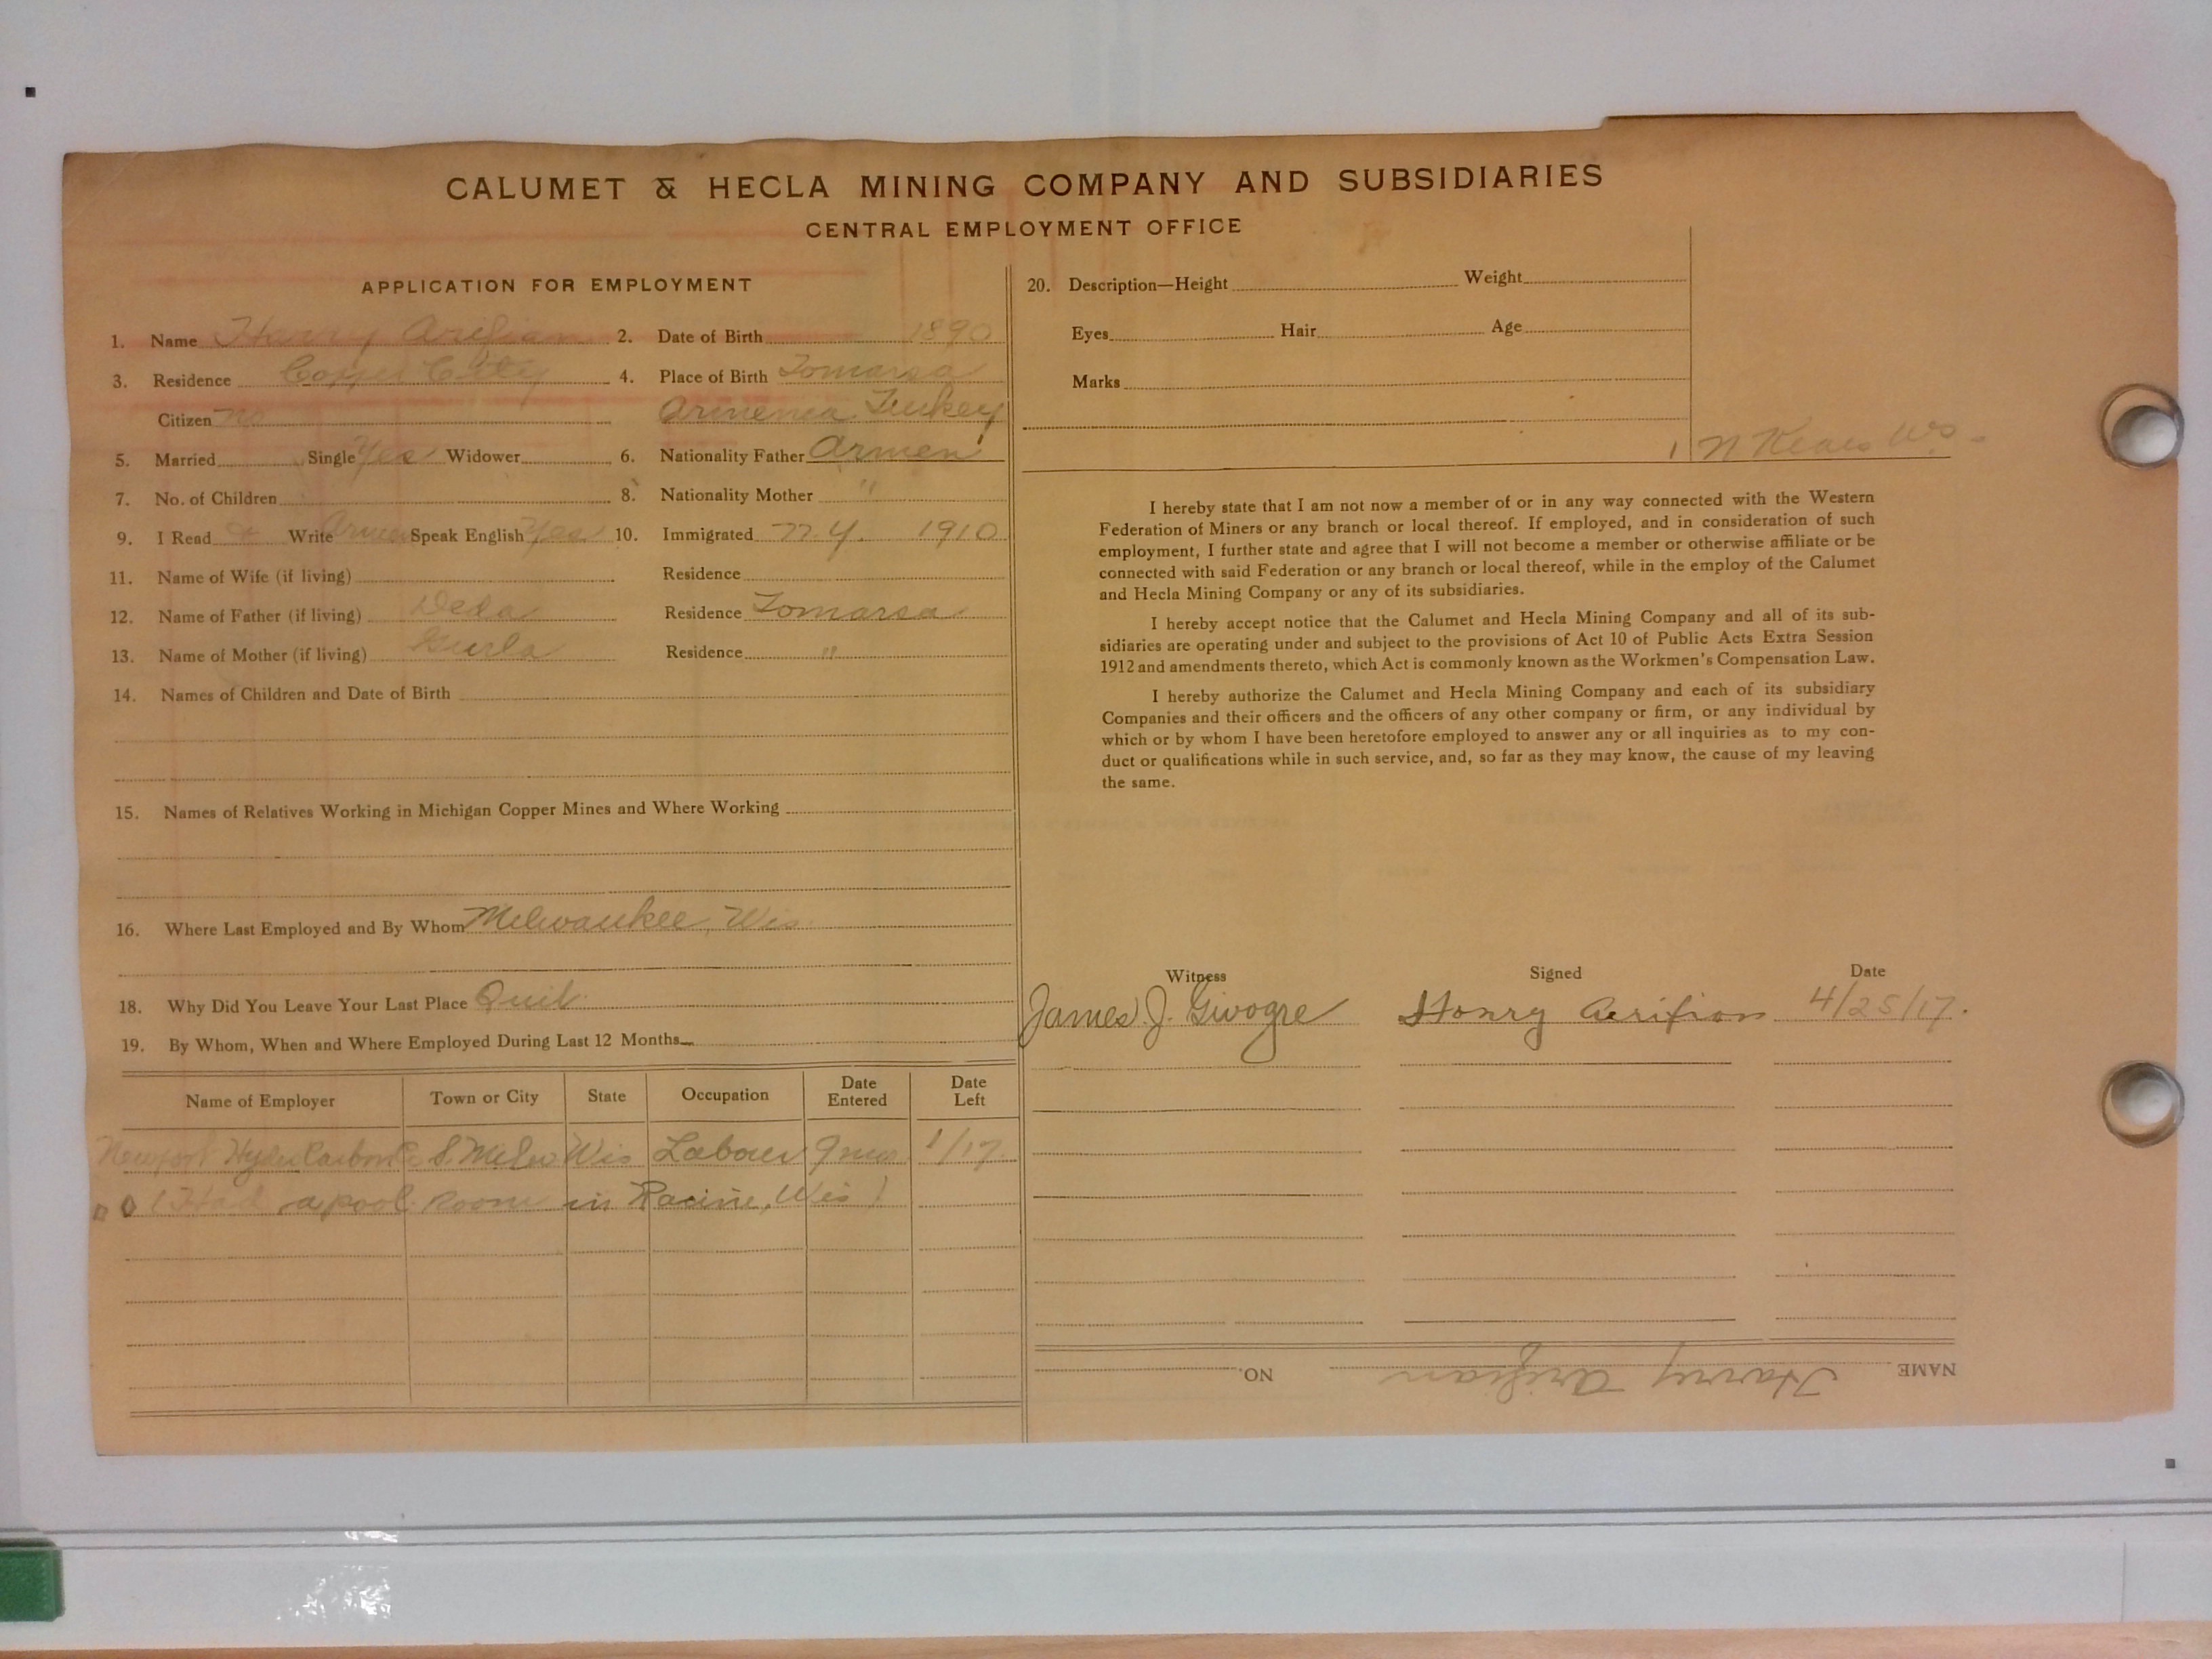 CALUMET & HECLA MINING COMPANY AND SUBSIDIARIES
CENTRAL EMPLOYMENT OFFICE
APPLICATION FOR EMPLOYMENT
1. Name Harry Arifian 2. Date of Birth 1890
3. Residence Copper City 4. Place of Birth Tomarsa
Citizen no Armenia Turkey
5. Married Single Yes Widower 6. Nationality Father Armen
7. No. of Children 8. Nationality Mother "
9. I Read & Write Armen Speak English Yes 10. Immigrated N.Y. 1910
11. Name of Wife (if living) Residence
12. Name of Father (if living) Residence Tomarsa
13. Name of Mother (if living) Residence "
14. Names of Children and Date of Birth
15. Names of Relatives Working in Michigan Copper Mines and Where Working
16. Where Last Employed and By Whom Milwaukee, Wis.
18. Why Did You Leave Your Last Place Quit
19. By Whom, When and Where Employed During Last 12 Months
Name of Employer Town or City State Occupation Date Entered Date Left
Newport S. Milw Wis Laborer 9 mos 1/17
(Had a pool room in Racine, Wis)
20. Description—Height Weight
Eyes Hair Age
Marks
N Kears
I hereby state that I am not now a member of or in any way connected with the Western
Federation of Miners or any branch or local thereof. If employed, and in consideration of such
employment, I further state and agree that I will not become a member or otherwise affiliate or be
connected with said Federation or any branch or local thereof, while in the employ of the Calumet
and Hecla Mining Company or any of its subsidiaries.
I hereby accept notice that the Calumet and Hecla Mining Company and all of its sub-
sidiaries are operating under and subject to the provisions of Act 10 of Public Acts Extra Session
1912 and amendments thereto, which Act is commonly known as the Workmen's Compensation Law.
I hereby authorize the Calumet and Hecla Mining Company and each of its subsidiary
Companies and their officers and the officers of any other company or firm, or any individual by
which or by whom I have been heretofore employed to answer any or all inquiries as to my con-
duct or qualifications while in such service, and, so far as they may know, the cause of my leaving
the same.
Witness Signed Date
James J. Givogre Honry Aerifion 4/25/17.
NAME Harry Arifian NO.